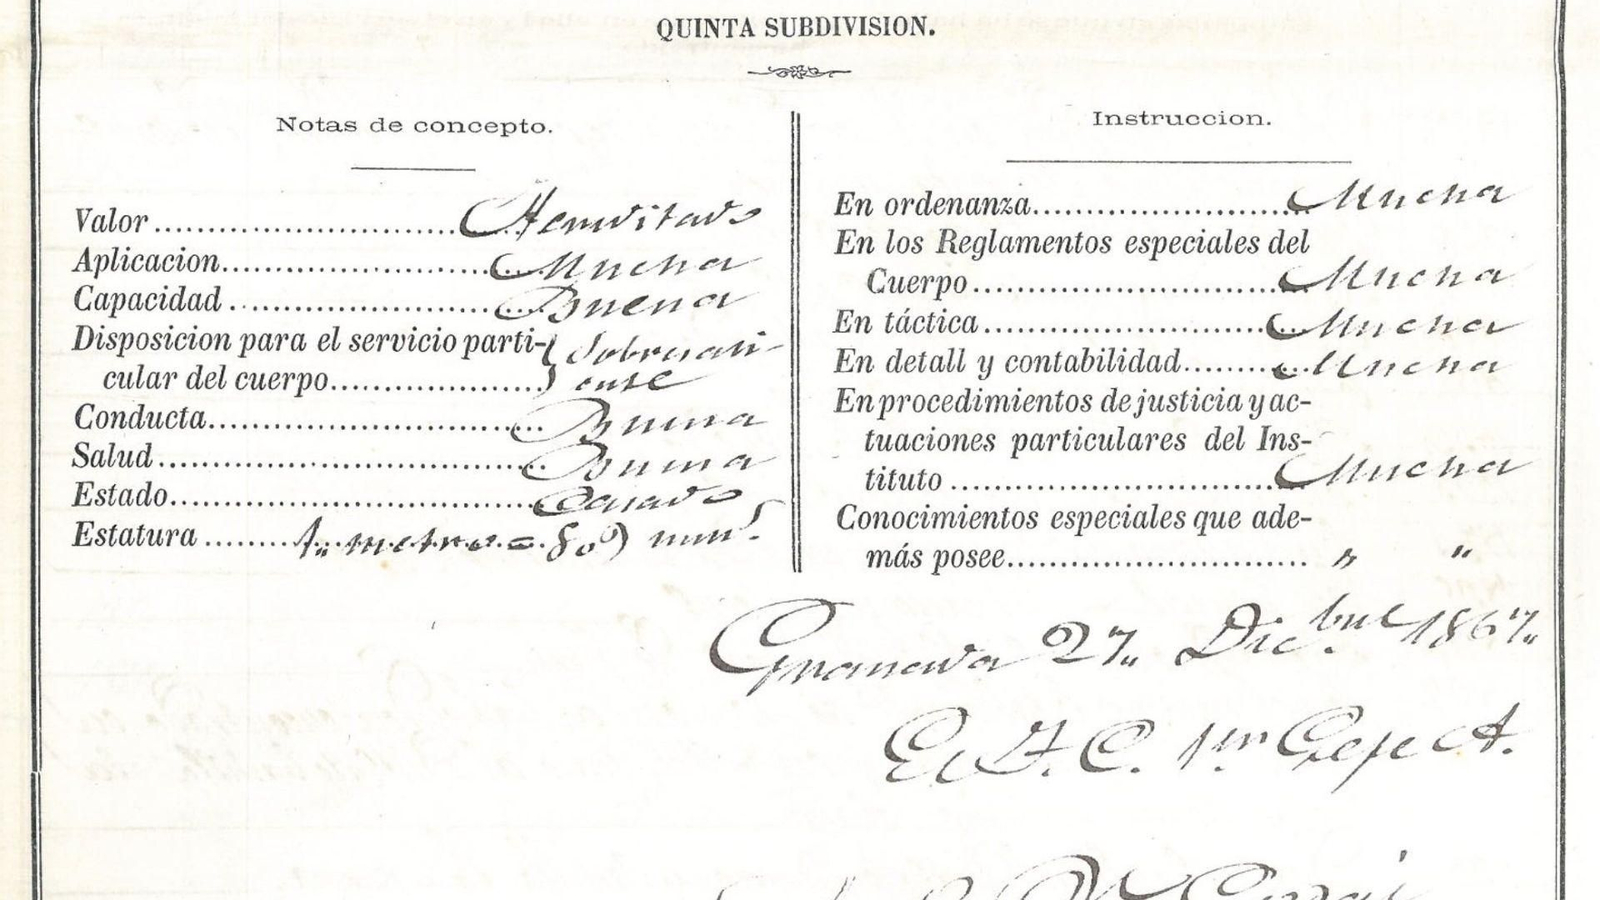 QUINTA SUBDIVISION.
Notas de concepto.
Valor.......................... Acreditado
Aplicacion..................... Mucha
Capacidad ..................... Buena
Disposicion para el servicio parti- Sobresali-
cular del cuerpo............... ente
Conducta....................... Buena
Salud.......................... Buena
Estado......................... Casado
Estatura ........ 1„ metro = 809 mm.s
Instruccion.
En ordenanza................... Mucha
En los Reglamentos especiales del
Cuerpo......................... Mucha
En táctica..................... Mucha
En detall y contabilidad....... Mucha
En procedimientos de justicia y ac-
tuaciones particulares del Ins-
tituto ........................ Mucha
Conocimientos especiales que ade-
más posee...................... „ „
Granada 27„ Dic.bre 1867„
El T. C. 1er Gefe A.